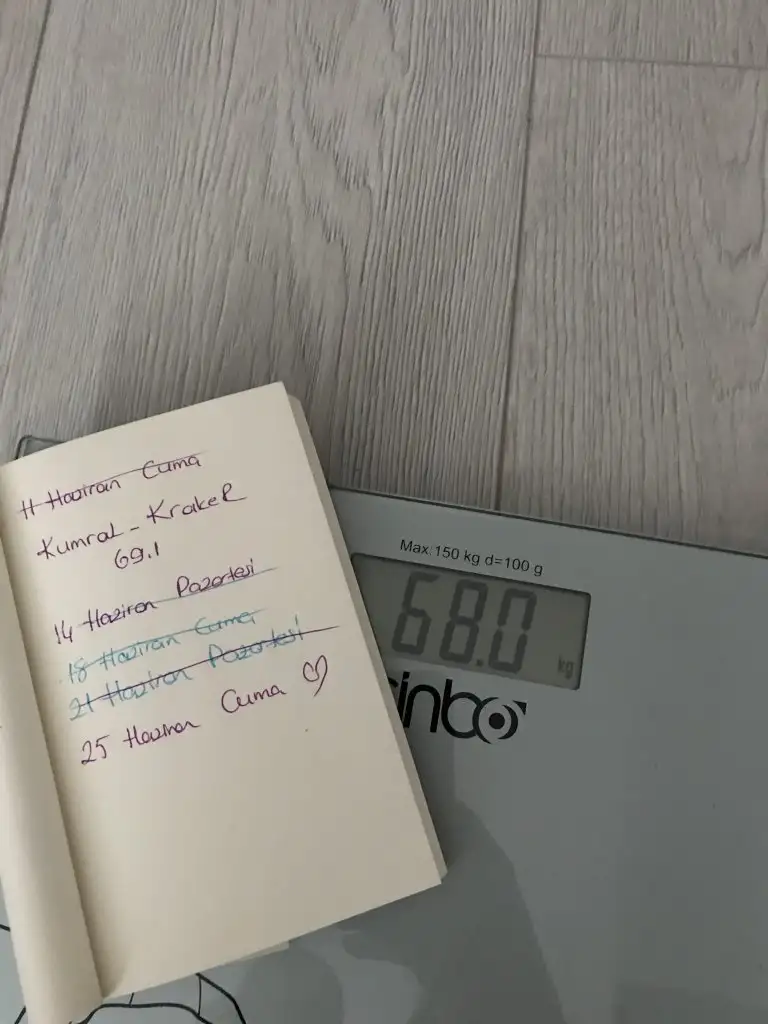 11 Haziran Cuma
Kumral - Kraker
69.1
14 Haziran Pazartesi
18 Haziran Cuma
21 Haziran Pazartesi
25 Haziran Cuma ♡
Max.150 kg d=100 g
68.0 kg
sinbo